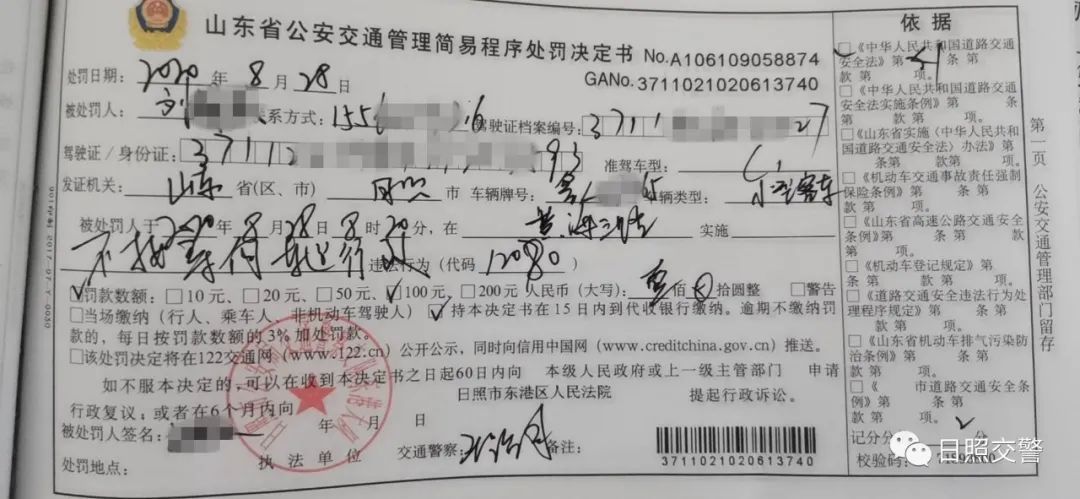 山东省公安交通管理简易程序处罚决定书 No.A106109058874
GANo.3711021020613740
处罚日期：2020年8月28日
被处罚人：刘 联系方式：155 16 驾驶证档案编号：3711 27
驾驶证/身份证：37112 93 准驾车型：C1
发证机关：山东省(区、市) 日照市 车辆牌号：鲁 车辆类型：小型客车
被处罚人于2020年8月28日8时20分，在黄海三路实施
不按导向车道行驶 违法行为（代码12080）
☑罚款数额：□10元、□20元、□50元、☑100元、□200元 人民币（大写）：壹佰 拾圆整 □警告
□当场缴纳（行人、乘车人、非机动车驾驶人）☑持本决定书在15日内到代收银行缴纳。逾期不缴纳罚
款的，每日按罚款数额的3%加处罚款。
□该处罚决定将在122交通网（www.122.cn）公开公示，同时向信用中国网（www.creditchina.gov.cn）推送。
如不服本决定的，可以在收到本决定书之日起60日内向 本级人民政府或上一级主管部门 申请
行政复议；或者在6个月内向 日照市东港区人民法院 提起行政诉讼。
被处罚人签名： 年 月 日
处罚地点： 执法单位 交通警察： 备注：
3711021020613740
依据
□《中华人民共和国道路交通
安全法》第 条第
款第 项。
□《中华人民共和国道路交通
安全法实施条例》第 条
第 款第 项。
□《山东省实施〈中华人民共和
国道路交通安全法〉办法》第
条第 款第 项。
□《机动车交通事故责任强制
保险条例》第 条第 款
第 项。
□《山东省高速公路交通安全
条例》第 条第 款
第 项。
□《机动车登记规定》第
条第 款第 项。
□《道路交通安全违法行为处
理程序规定》第 条第
款第 项。
□《山东省机动车排气污染防
治条例》第 条第 款
第 项。
□《 市道路交通安全条
例》第 条第
款第 项。
记分分值 2 分
校验码：
第一页 公安交通管理部门留存
日照交警